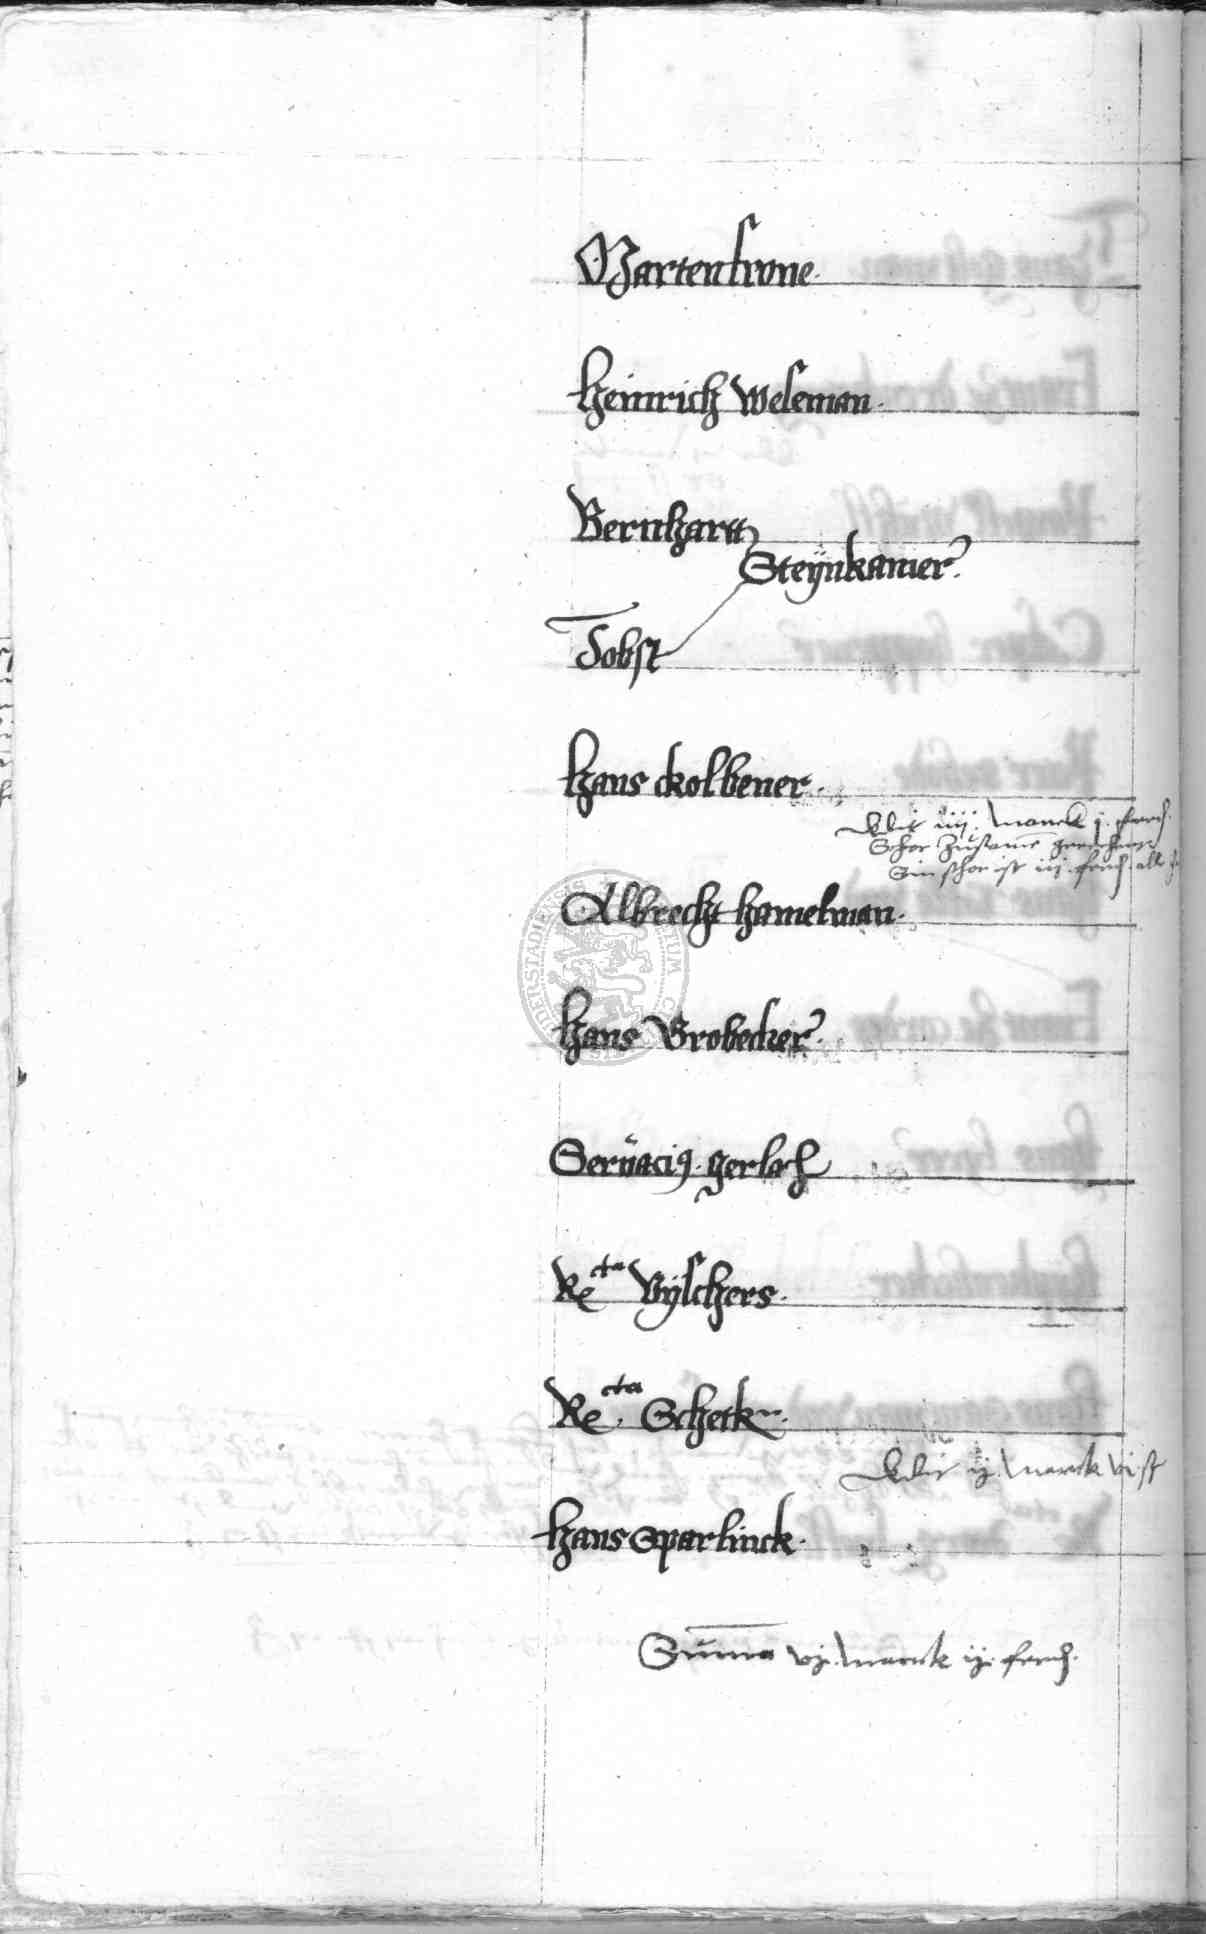 Marten krone
Heinrich Weseman
Bernhartt
Steÿnkamer
Jobst
Hans ckolbener
dedit iiij marck j ferd
Schor zusamen gerechent
Sin schor ist iij ferd all
Albrecht Hamelman
Hans Grobecker
Seruacius gerlach
Recta Vÿschers
Recta Schetk
dedit ij marck vi ß
Hans Sparlinck
Summa vj marck ij ferd